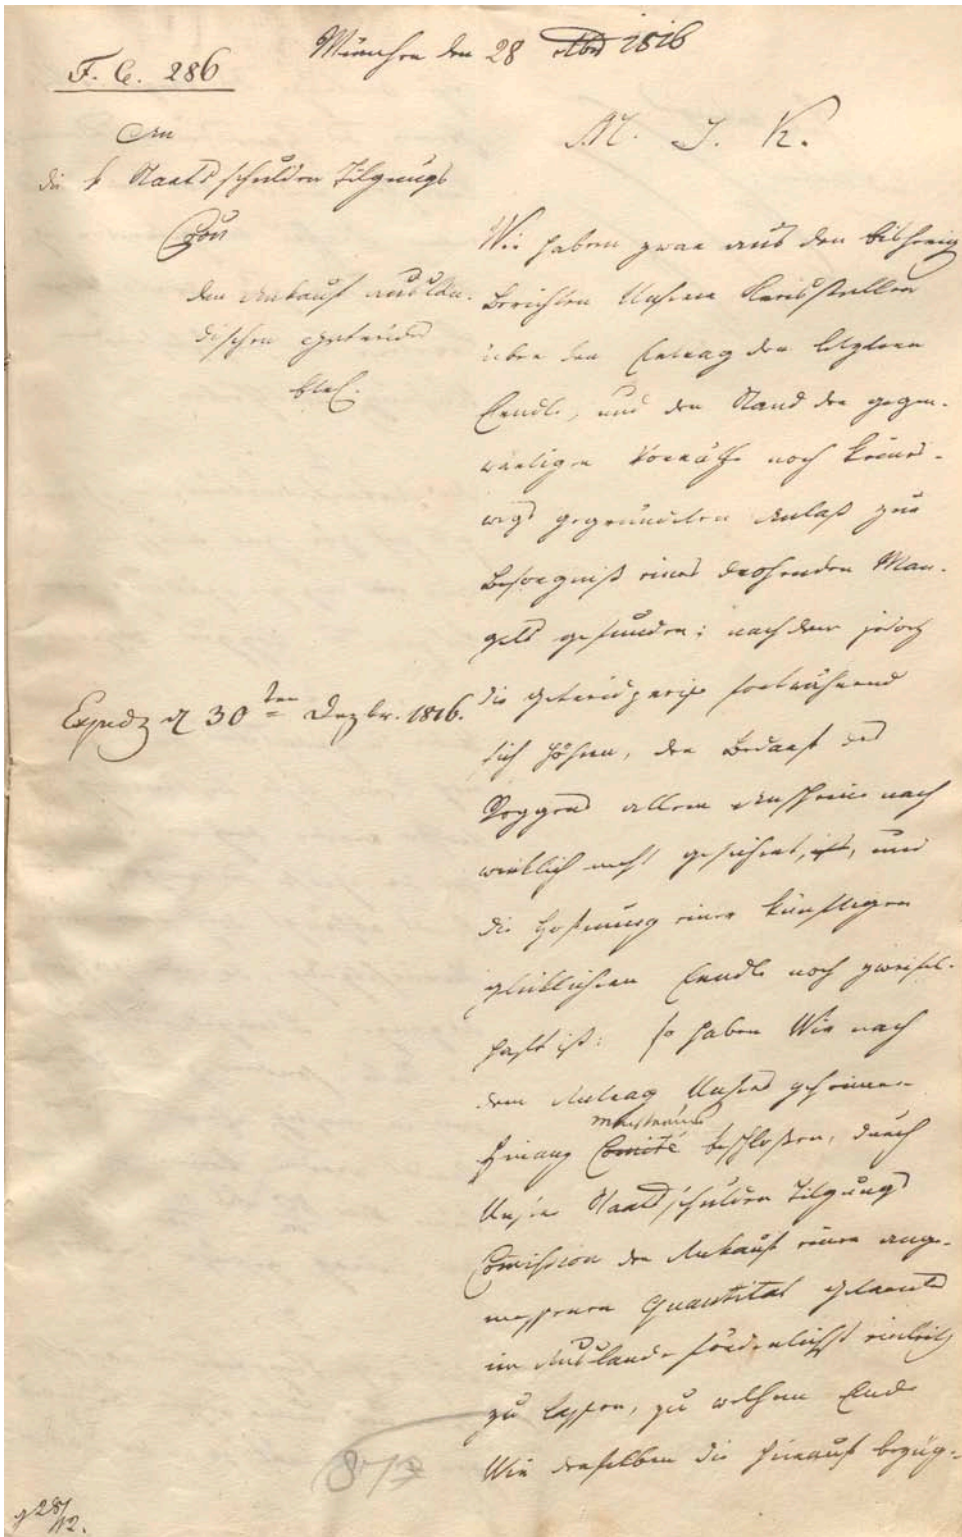 München den 28 Xbr 1816
F. C. 286
An
die k Staatsschulden Tilgungs
Coōn
den Ankauf auslän-
dischen Getreides
betref.
M. J. K.
Wir haben zwar aus den bisherig
Berichten Unserer Kreisstellen
über den Ertrag der letztern
Erndte, und den Stand der gegen-
wärtigen Vorräthe noch keines-
wegs gegründeten Anlaß zur
Besorgniß eines drohenden Man-
gels gefunden; nachdem jedoch
die Getreidpreise fortwährend
sich höhern, der Bedarf des
Roggens allem Anscheine nach
wirklich nicht gesichert, ist, und
die Hofnung einer künftigen
glücklichen Erndte noch zweifel-
haft ist: so haben Wir nach
dem Antrag Unsers geheimen
Finanz Comité beschloßen, durch
Unsere Staatsschulden Tilgungs
Com̄ission den Ankauf einer ange-
messenen Quantität Getreids
im Auslande fördersamst einleit
zu lassen, zu welchem Ende
Wir derselben die hierauf bezüg-
Expedz d 30ten Dezbr. 1816.
873
28/12.